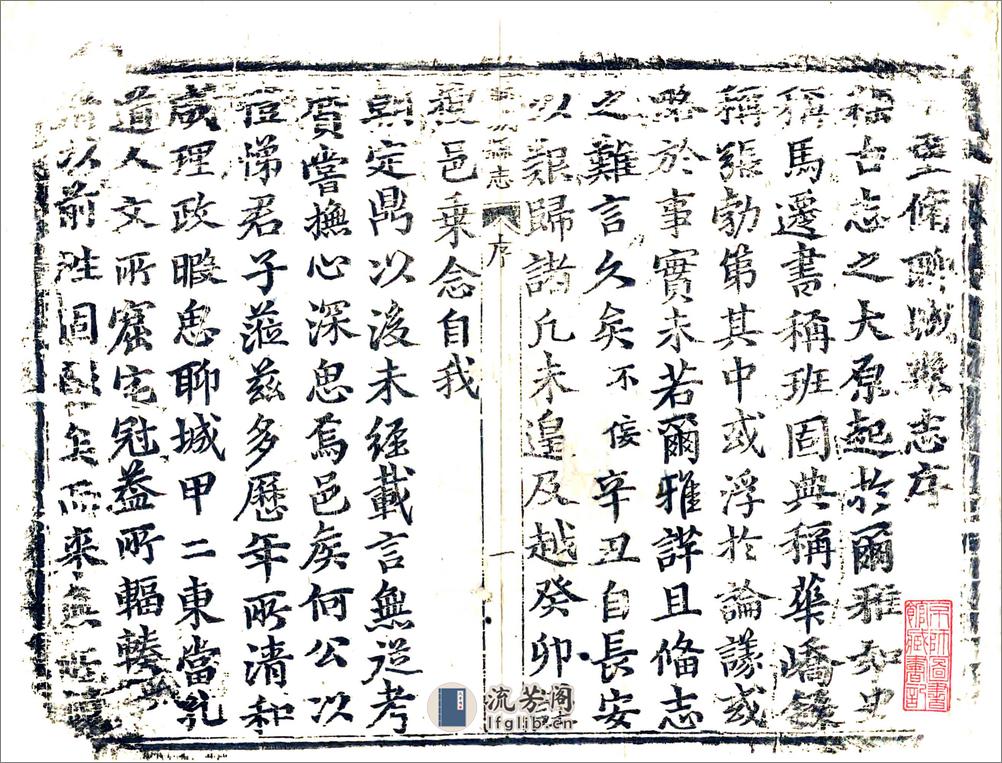 重脩聊城縣志序
稱古志之大原起於爾雅如史
稱馬遷書稱班固典稱華嶠錄
稱張勃第其中或浮於論議或
略於事實未若爾雅詳且俻志
之難言久矣不佞辛丑自長安
以艱歸諸凡未遑及越癸卯
聊城縣志
序
一
想邑乗念自我
朝定鼎以後未經載言無從考
質嘗撫心深思焉邑矦何公以
愷悌君子蒞兹多歷年所清和
咸理政暇思聊城甲二東當孔
道人文所窟宅冠葢所輻轃
以前徃固矣而來無
流芳阁
lfglib.cn
京師圖書
館藏書記